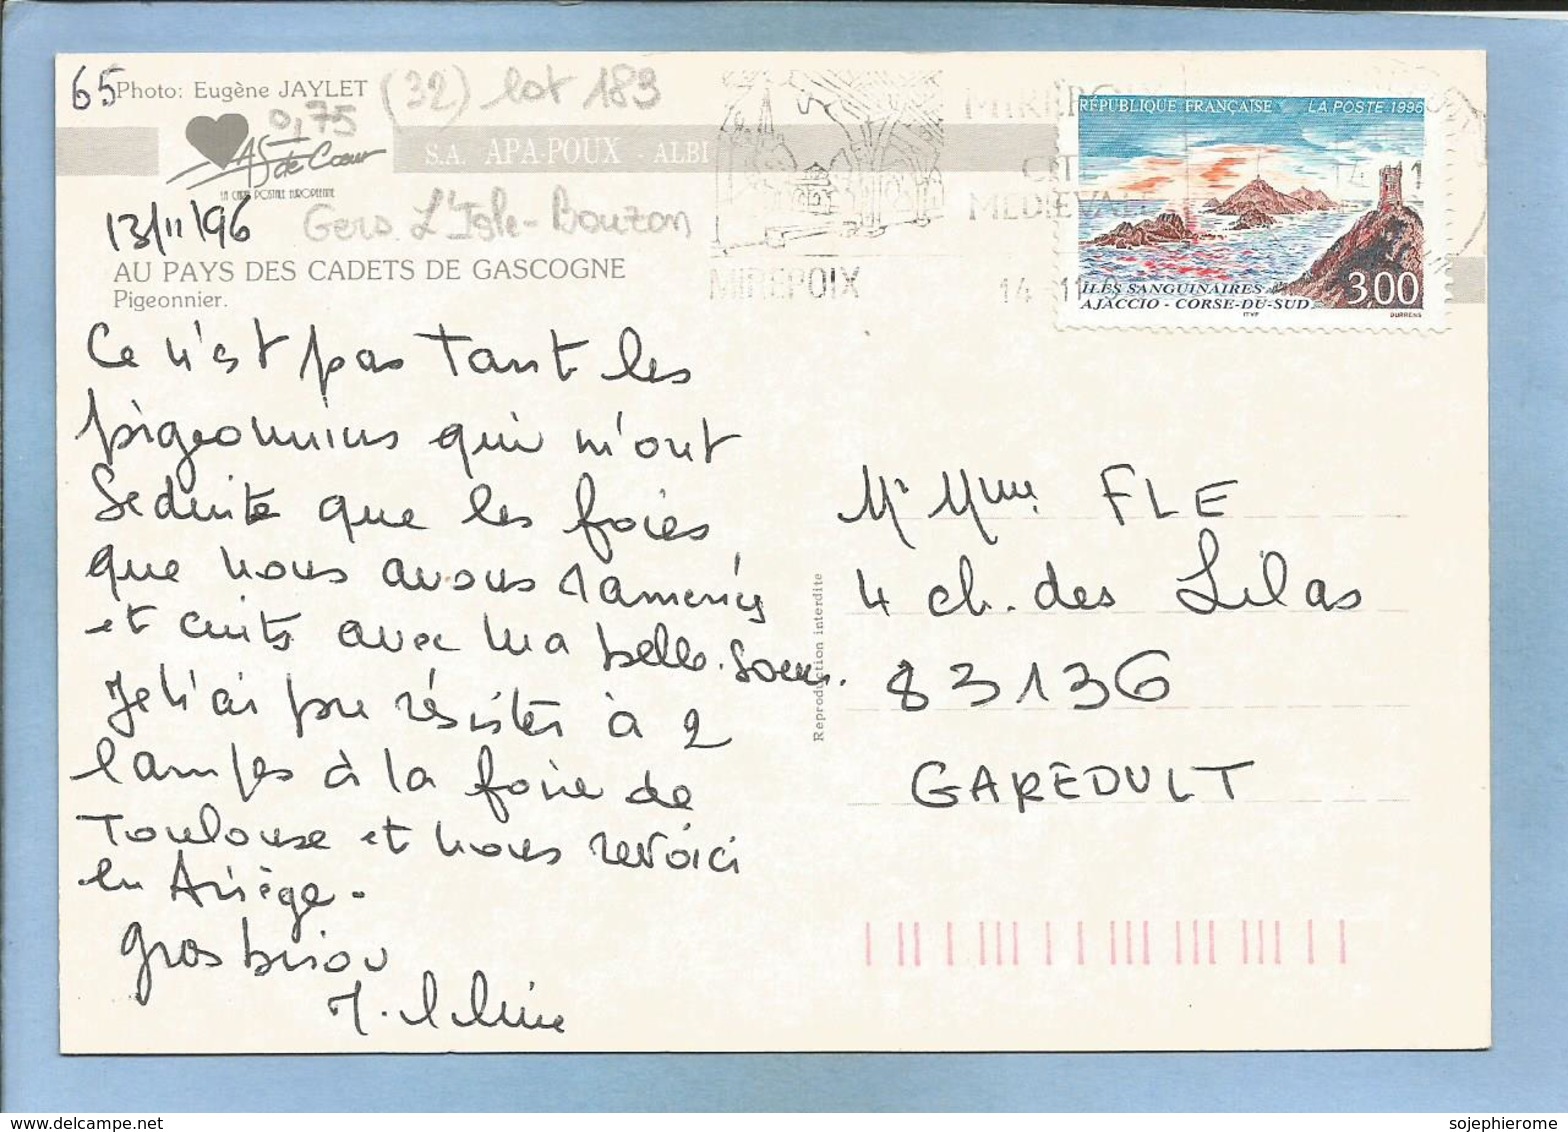 65
Photo: Eugène JAYLET
(32) lot 183
0,75
AS de Cœur
LA CARTE POSTALE EUROPÉENNE
S.A. APA-POUX - ALBI
13/11/96
Gers L'Isle-Bouzon
AU PAYS DES CADETS DE GASCOGNE
Pigeonnier.
Ce n'est pas tant les
pigeonniers qui m'ont
séduite que les foies
que nous avons ramenés
et cuits avec ma belle-soeur.
Je n'ai pu résister à 2
lampes à la foire de
Toulouse et nous revoici
en Ariège.
gros bisou
MIREPOIX
14 11
RÉPUBLIQUE FRANÇAISE LA POSTE 1996
ILES SANGUINAIRES
AJACCIO - CORSE-DU-SUD
3,00
ITVF DURRENS
Reproduction interdite
Mr Mme FLE
4 ch. des Lilas
83136
GAREOULT
www.delcampe.net
sojephierome